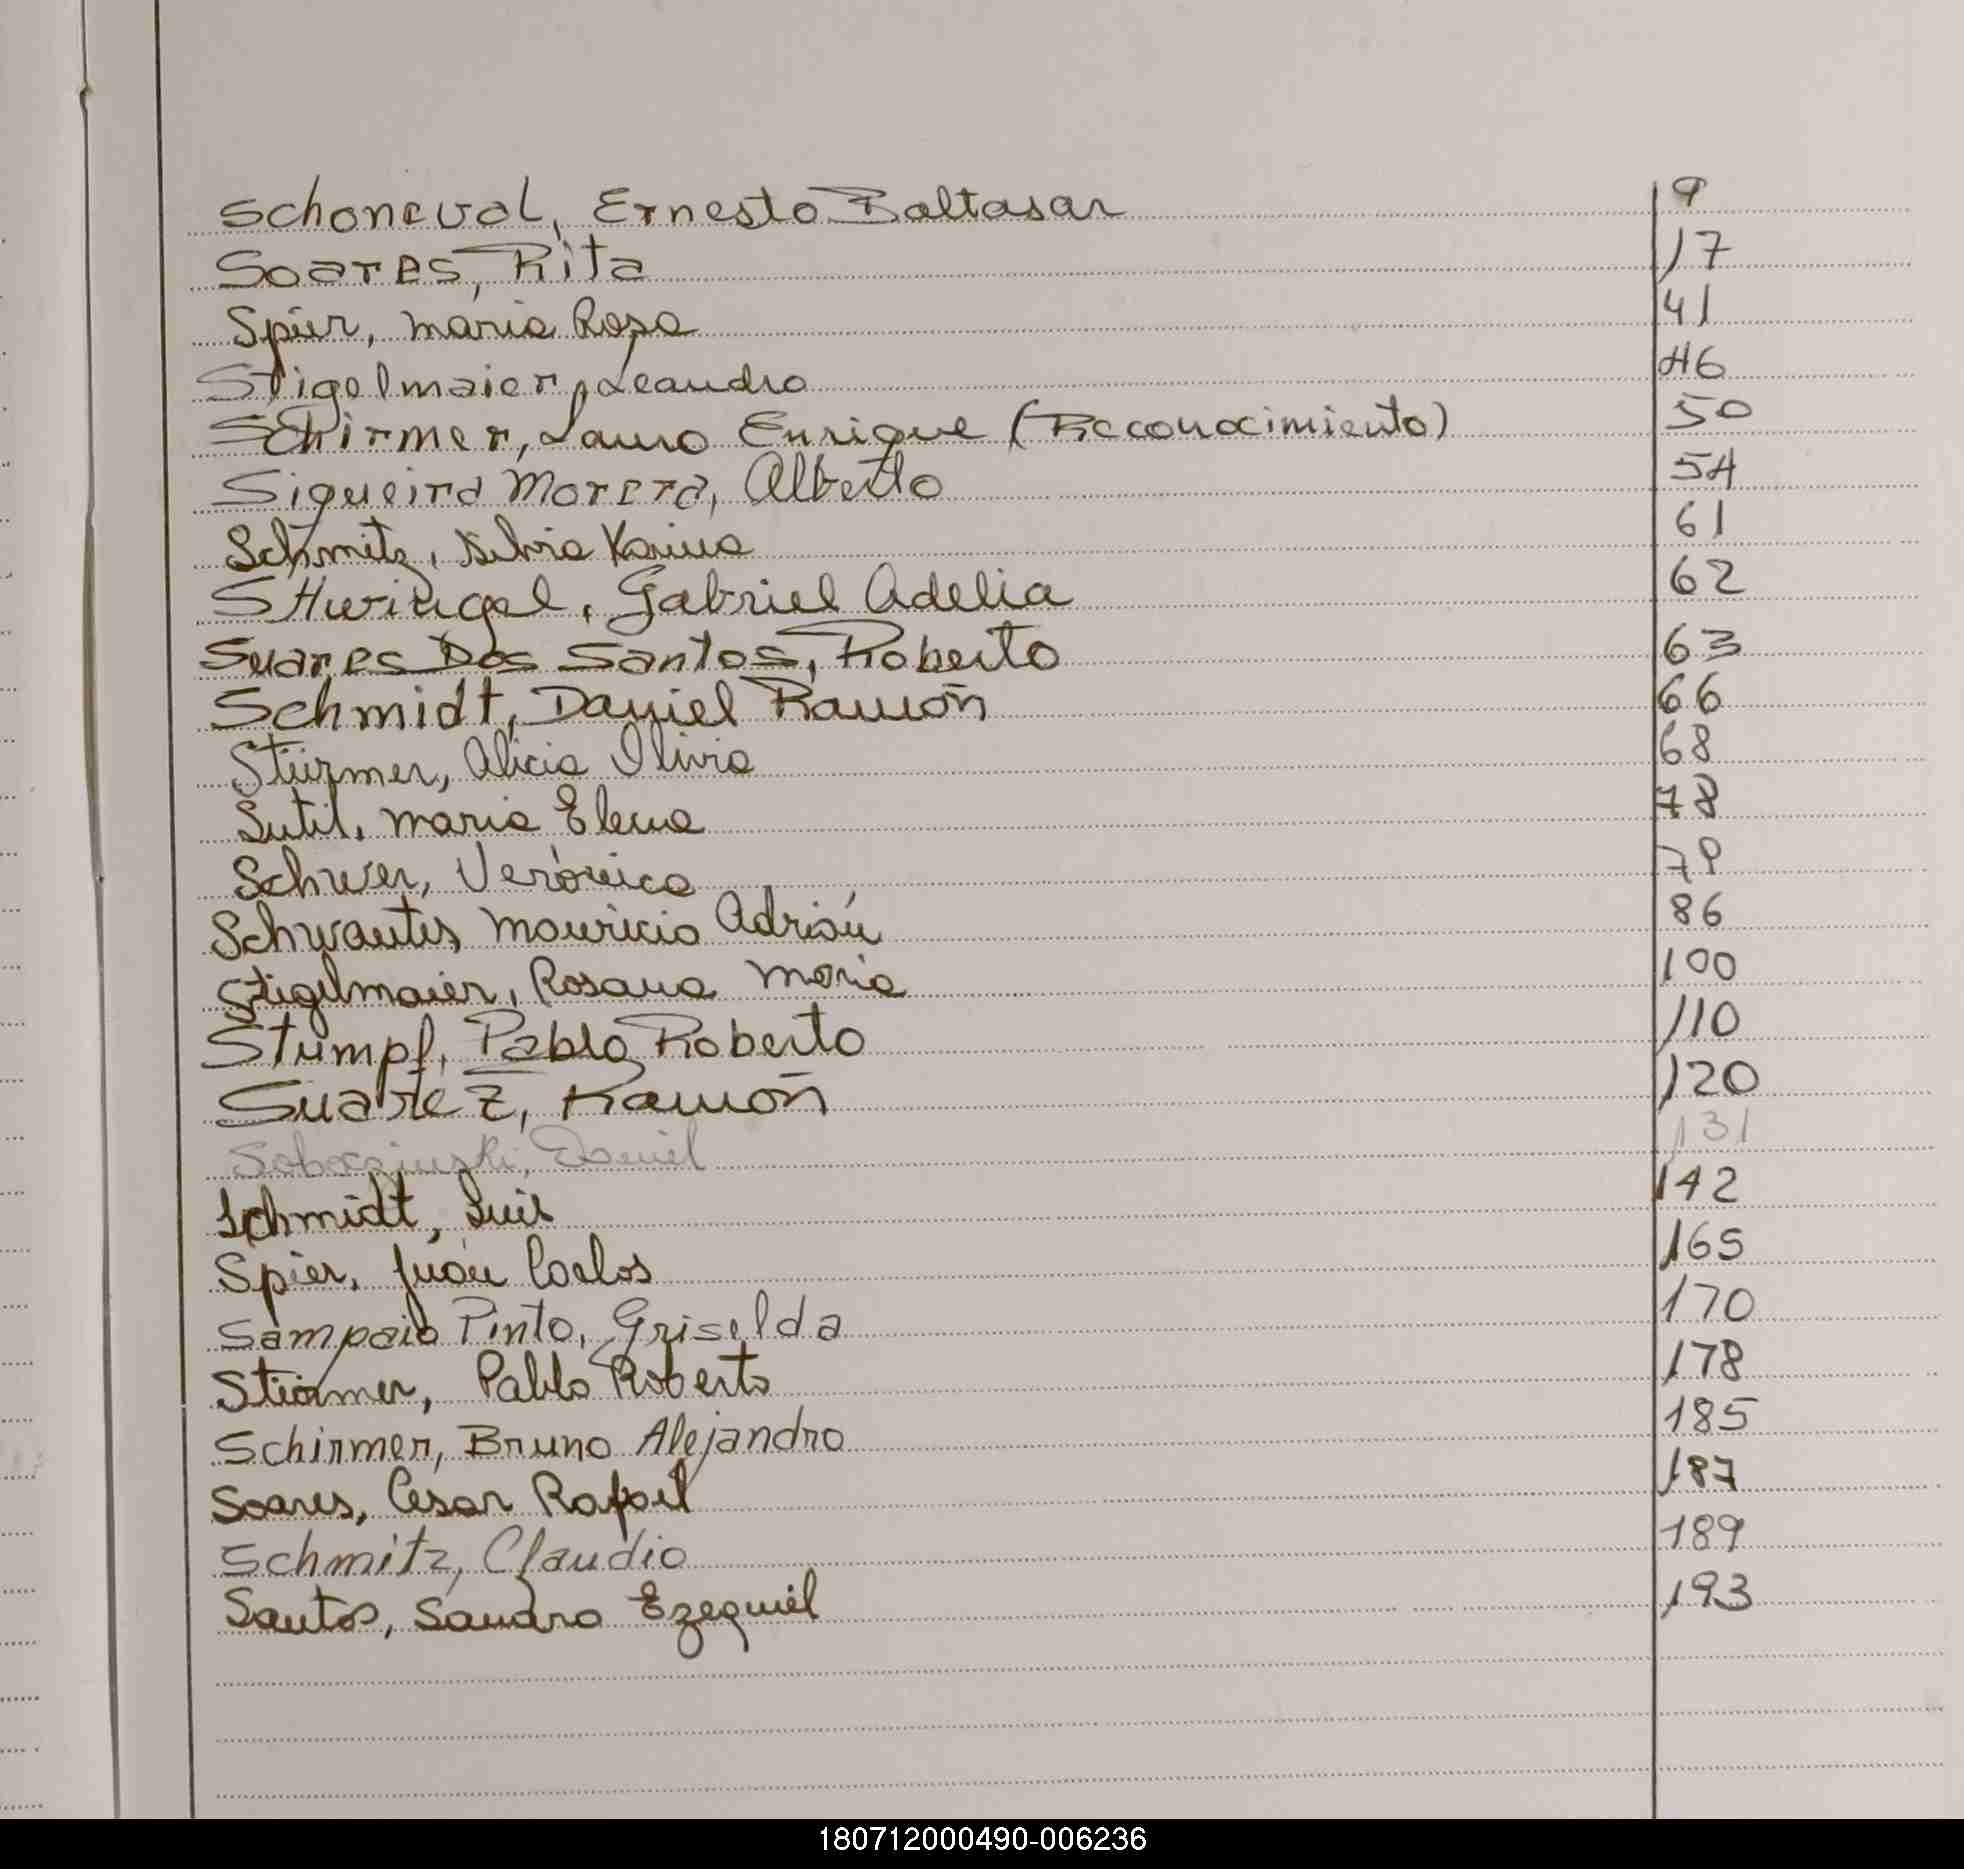 Schoneval, Ernesto Baltasar 9
Soares, Rita 17
Spier, Maria Rosa 41
Stigelmaier, Leandro 46
Schirmer, Lauro Enrique (Reconocimiento) 50
Siqueira Morera, Alberto 54
Schmitz, Silvia Karina 61
SHuringel, Gabriel Adelia 62
Suares Dos Santos, Roberto 63
Schmidt, Daniel Ramón 66
Stürmer, Alicia Olivia 68
Sutil, Maria Elena 78
Schwer, Verónica 79
Schwantes Mauricio Adrián 86
Stigelmaier, Rosana Maria 100
Stumpf, Pablo Roberto 110
Suárez, Ramón 120
Soboczinski, Daniel 131
Schmidt, Luis 142
Spier, Juán Carlos 165
Sampaio Pinto, Griselda 170
Stürmer, Pablo Roberto 178
Schirmer, Bruno Alejandro 185
Soares, Cesar Rafael 187
Schmitz, Claudio 189
Santos, Sandro Ezequiel 193
180712000490-006236